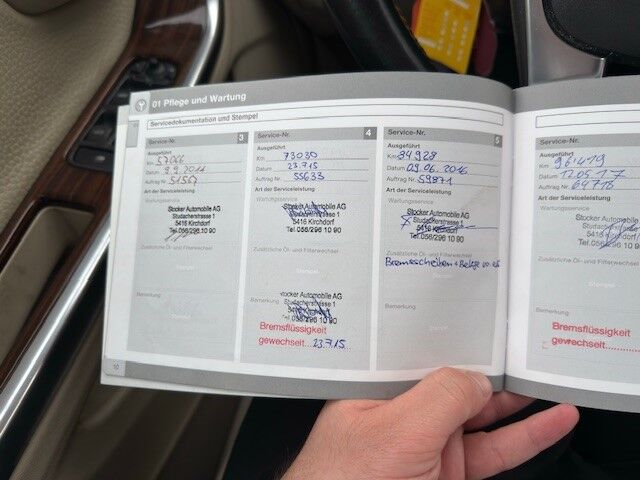 01 Pflege und Wartung
Servicedokumentation und Stempel
Service-Nr. 3
Ausgeführt
Km 57066
Datum 9.9.2014
Auftrag Nr.
Art der Serviceleistung
Wartungsservice
Stocker Automobile AG
Studacherstrasse 1
5416 Kirchdorf
Tel.056/296 10 90
Zusätzliche Öl- und Filterwechsel
Stempel
Bemerkung
Stempel
10
Service-Nr. 4
Ausgeführt
Km 73030
Datum 23.7.15
Auftrag Nr. 55633
Art der Serviceleistung
Wartungsservice
Stocker Automobile AG
Studacherstrasse 1
5416 Kirchdorf
Tel.056/296 10 90
Zusätzliche Öl- und Filterwechsel
Stempel
Stocker Automobile AG
Bemerkung Studacherstrasse 1
Tel.056/296 10 90
Bremsflüssigkeit
gewechselt... 23.7.15
Service-Nr. 5
Ausgeführt
Km 84928
Datum 09.06.2016
Auftrag Nr. 59871
Art der Serviceleistung
Wartungsservice
Stocker Automobile AG
Studacherstrasse 1
5416 Kirchdorf
Tel.056/296 10 90
Zusätzliche Öl- und Filterwechsel
Bremsscheiben + Beläge
Bemerkung
Stempel
Service-Nr.
Ausgeführt
Km
Datum 12.05.17
Auftrag Nr. 64776
Art der Serviceleistung
Wartungsservice
Stocker
Studacherstrasse
5416
Tel.056/296
Zusätzliche Öl- und Filterwechsel
Bemerkung
Bremsflüssigkeit
gewechselt